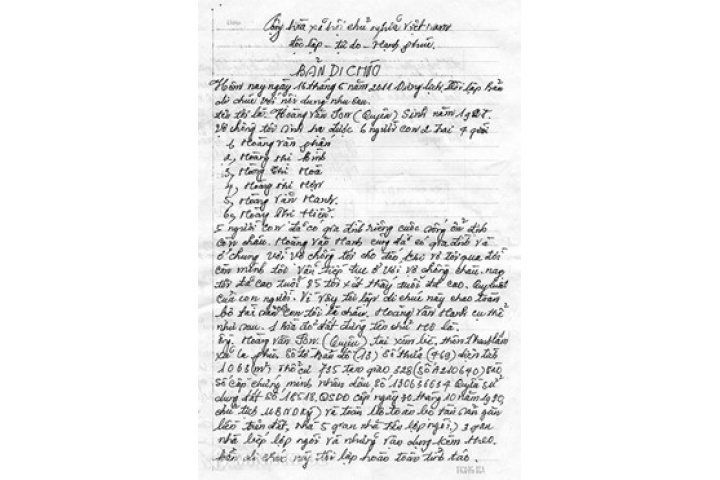 Cộng hòa xã hội chủ nghĩa Việt Nam
Độc lập - tự do - Hạnh phúc.
BẢN DI CHÚC
Hôm nay ngày 15 tháng 5 năm 2011 Dương lịch, tôi lập bản
di chúc với nội dung như sau.
tên tôi là. Hoàng Văn Sơn (Quyên) Sinh năm 1927.
Vợ chồng tôi sinh ra được 6 người con 2 trai 4 gái
1, Hoàng Văn
2, Hoàng thị Bình
3, Hoàng thị Hoà
4, Hoàng thị
5, Hoàng Văn Hạnh.
6, Hoàng thị Hiển.
5 người con đã có gia đình riêng cuộc sống ổn định
con cháu. Hoàng Văn Hạnh cũng đã có gia đình và
ở chung với vợ chồng tôi cho đến khi vợ tôi qua đời
còn mình tôi vẫn tiếp tục ở với vợ chồng cháu. nay
tôi đã cao tuổi 85 tôi xét thấy tuổi đã cao. Quy luật
của con người. Vì vậy tôi lập di chúc này cho toàn
bộ tài sản con tôi là cháu. Hoàng Văn Hạnh cụ thể
như sau. 1 bìa đỏ đất đứng tên chủ Hộ là.
Ông. Hoàng Văn Sơn. (Quyên) tại xóm bể, thôn
xã la phù. Số tờ bản đồ (13) Số thửa (469) diện tích
1063(m²) thổ cư 735 tạm giao 328 (số A210640) Sổ
số cấp chứng minh nhân dân số 130636684 Quyền sử
dụng đất số 18518. QSDĐ cấp ngày 30 tháng 10 năm 1990,
chủ tịch UBND ký) và toàn bộ tài sản gắn
liền trên đất, nhà 5 gian nhà lợp ngói,) 3 gian
nhà bếp lợp ngói và những vận dụng kèm theo.
bản di chúc này tôi lập hoàn toàn tỉnh táo.